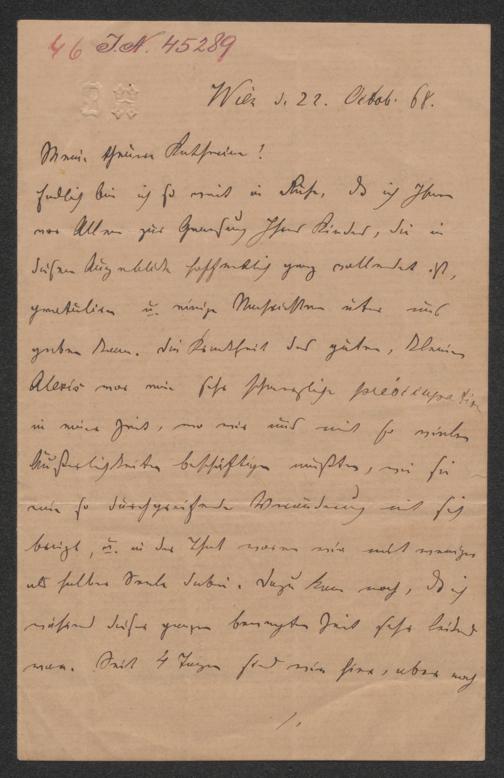 46 J.N. 45289
Wien d. 22. Octob. 68.
Meine theure Catherine!
Endlich bin ich so weit in Ruhe, daß ich Ihnen
vor Allem zur Genesung Ihres Kindes, die in
diesem Augenblick hoffentlich ganz vollendet ist,
gratuliren u. einige Nachrichten über uns
geben kann. Die Krankheit des guten, kleinen
Alexis war eine sehr schmerzliche préoccupation
in einer Zeit, wo wir uns mit so vielen
Äußerlichkeiten beschäftigen mußten, wie sie
eine so durchgreifende Veränderung mit sich
bringt, u. in der That waren wir mit weniger
als halber Seele dabei. Dazu kam noch, daß ich
während dieser ganzen bewegten Zeit sehr leidend
war. Seit 4 Tagen sind wir hier, aber noch
./.